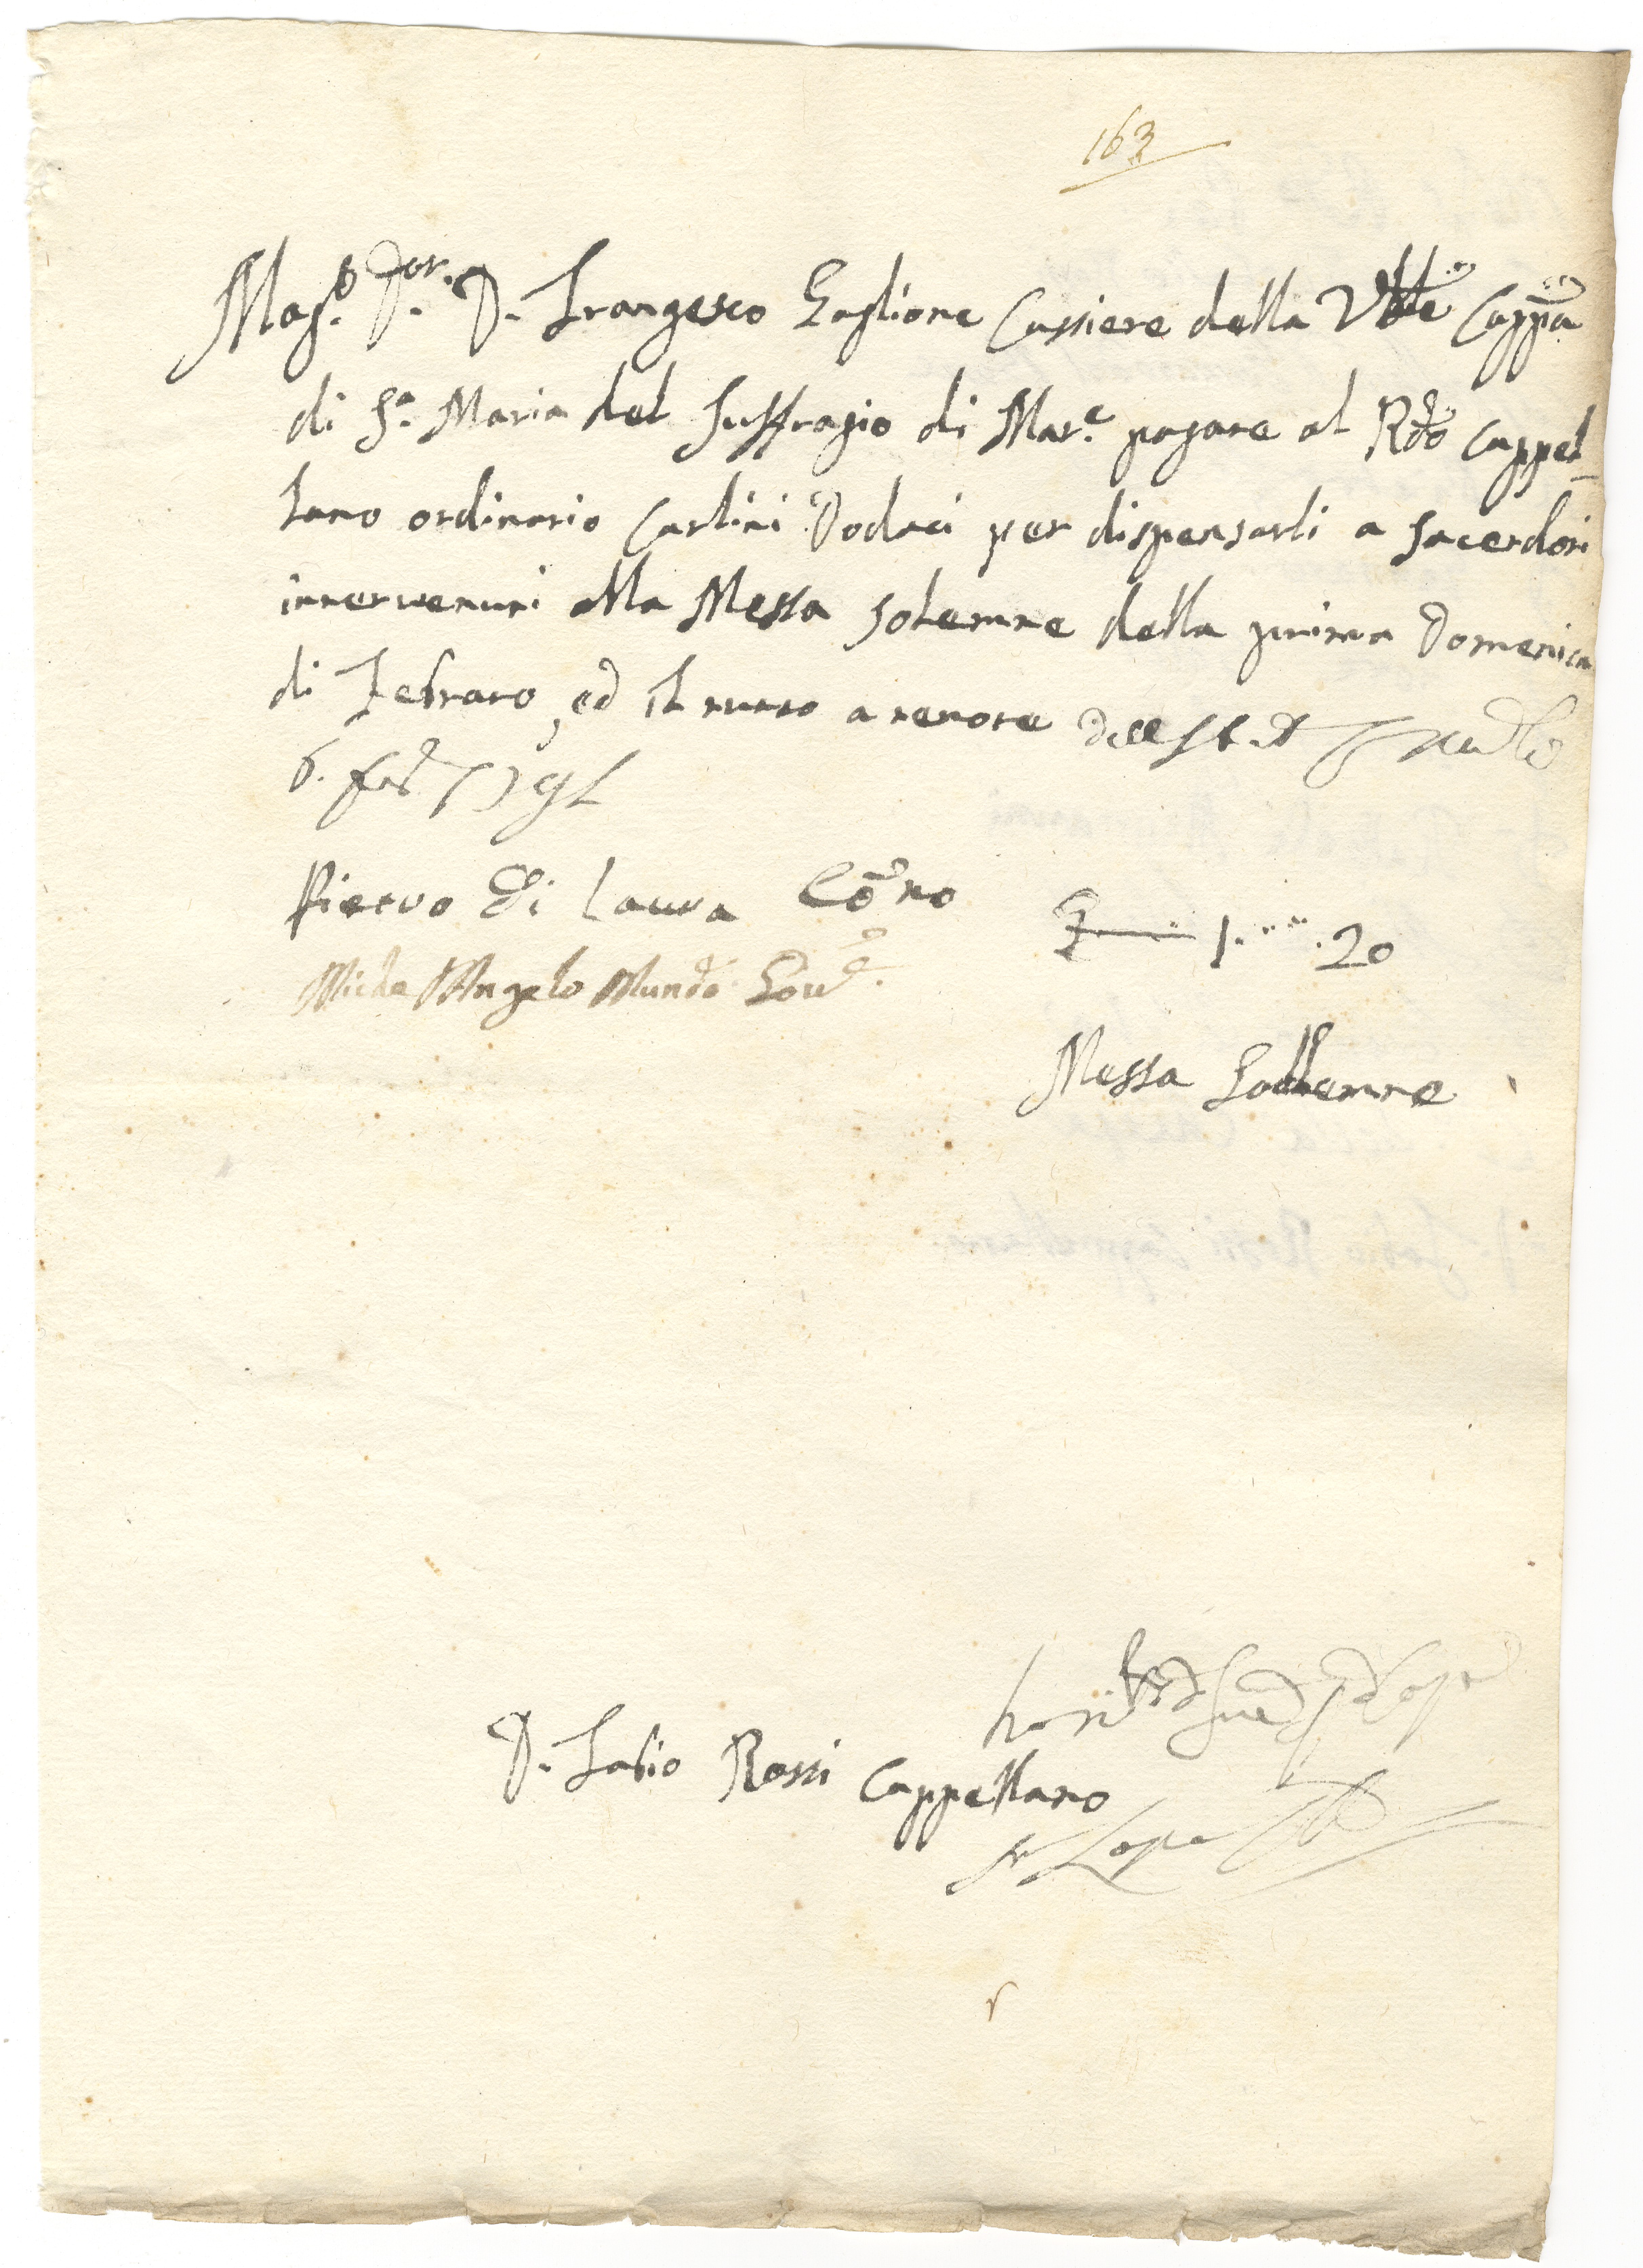 163
Mag.co D.or D. Frangesco Gaglione Cassiere della Vble Cappa
di S.a Maria del Suffragio di Mar.e pagare al Rdo Cappel-
lano ordinario Carlini Dodaci per dispensarli a Sacerdoti
intervenuti alla Messa Solemne della prima Domenica
di Febraro, ed il tutto a tenore
6. feb
Pietro di Laura
Michel Angelo Mundo Gov.e
1. 20
Messa Sollemne
D. Fabio Rossi Cappellano